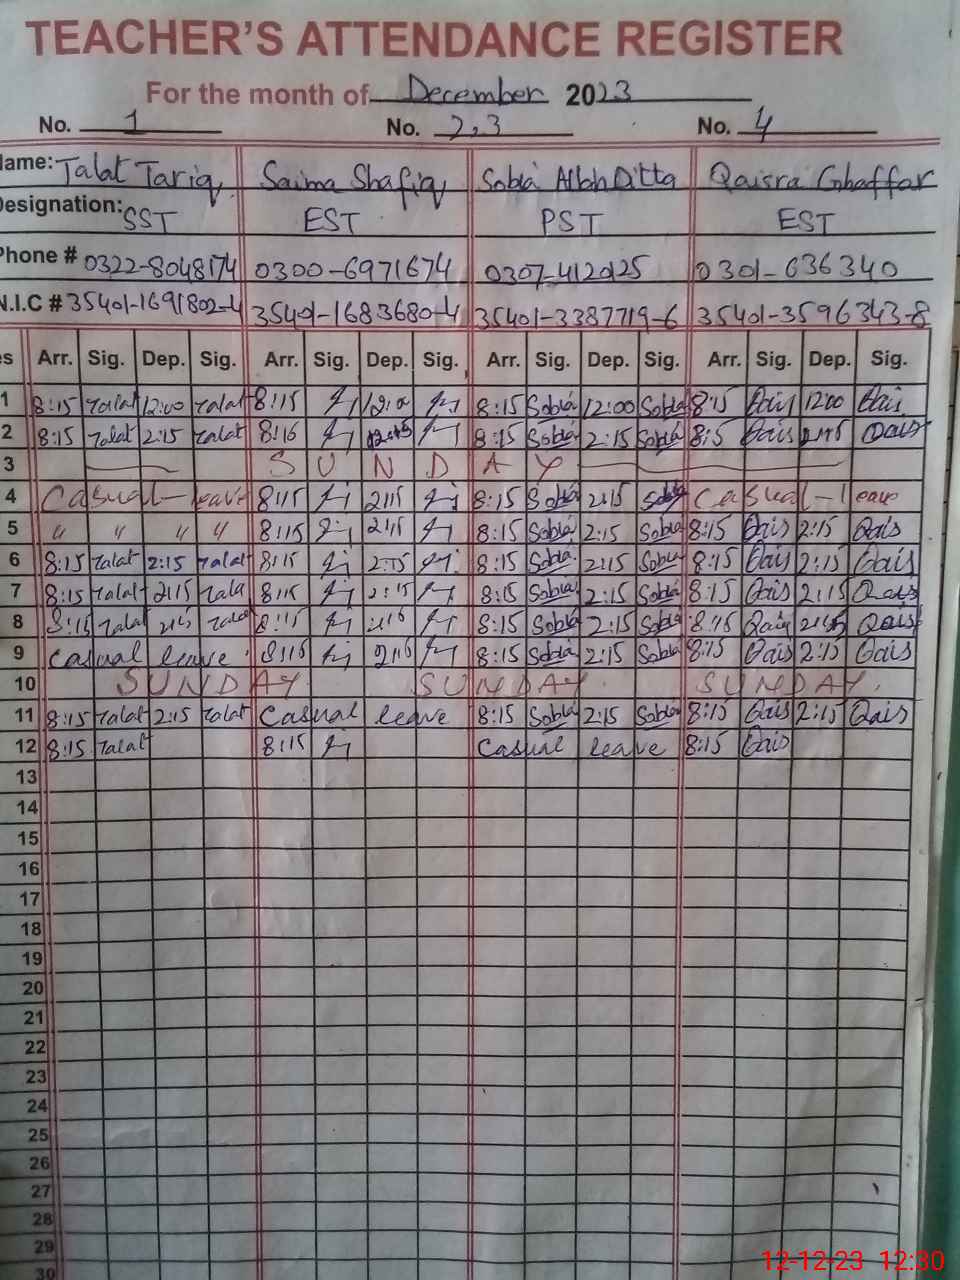 TEACHER'S ATTENDANCE REGISTER
For the month of December 2023
No. 1 No. 2,3 No. 4
Name: Talat Tariq Saima Shafiq Sobia Allah Ditta Qaisra Ghaffar
Designation: SST EST PST EST
Phone # 0322-8048174 0300-6971674 0307-4120125 0301-636340
N.I.C # 35401-1691802-4 35401-1683680-4 35401-3387719-6 35401-3596343-8
es Arr. Sig. Dep. Sig. Arr. Sig. Dep. Sig. Arr. Sig. Dep. Sig. Arr. Sig. Dep. Sig.
1 8:15 Talat 12:00 Talat 8:15 8:15 Sobia 12:00 Sobia 8:15 Qais 12:00 Qais
2 8:15 Talat 2:15 Talat 8:15 8:15 Sobia 2:15 Sobia 8:15 Qais 2:15 Qais
3 SUNDAY
4 Casual - leave 8:15 2:15 8:15 Sobia 2:15 Sobia Casual - leave
5 " " " " 8:15 2:15 8:15 Sobia 2:15 Sobia 8:15 Qais 2:15 Qais
6 8:15 Talat 2:15 Talat 8:15 2:15 8:15 Sobia 2:15 Sobia 8:15 Qais 2:15 Qais
7 8:15 Talat 2:15 Tala 8:15 2:15 8:15 Sobia 2:15 Sobia 8:15 Qais 2:15 Qais
8 8:15 Talat 2:15 Talat 8:15 2:15 8:15 Sobia 2:15 Sobia 8:15 Qais 2:15 Qais
9 Casual leave 8:15 2:15 8:15 Sobia 2:15 Sobia 8:15 Qais 2:15 Qais
10 SUNDAY SUNDAY SUNDAY
11 8:15 Talat 2:15 Talat Casual leave 8:15 Sobia 2:15 Sobia 8:15 Qais 2:15 Qais
12 8:15 Talat 8:15 Casual leave 8:15 Qais
13
14
15
16
17
18
19
20
21
22
23
24
25
26
27
28
29
30
12-12-23 12:30